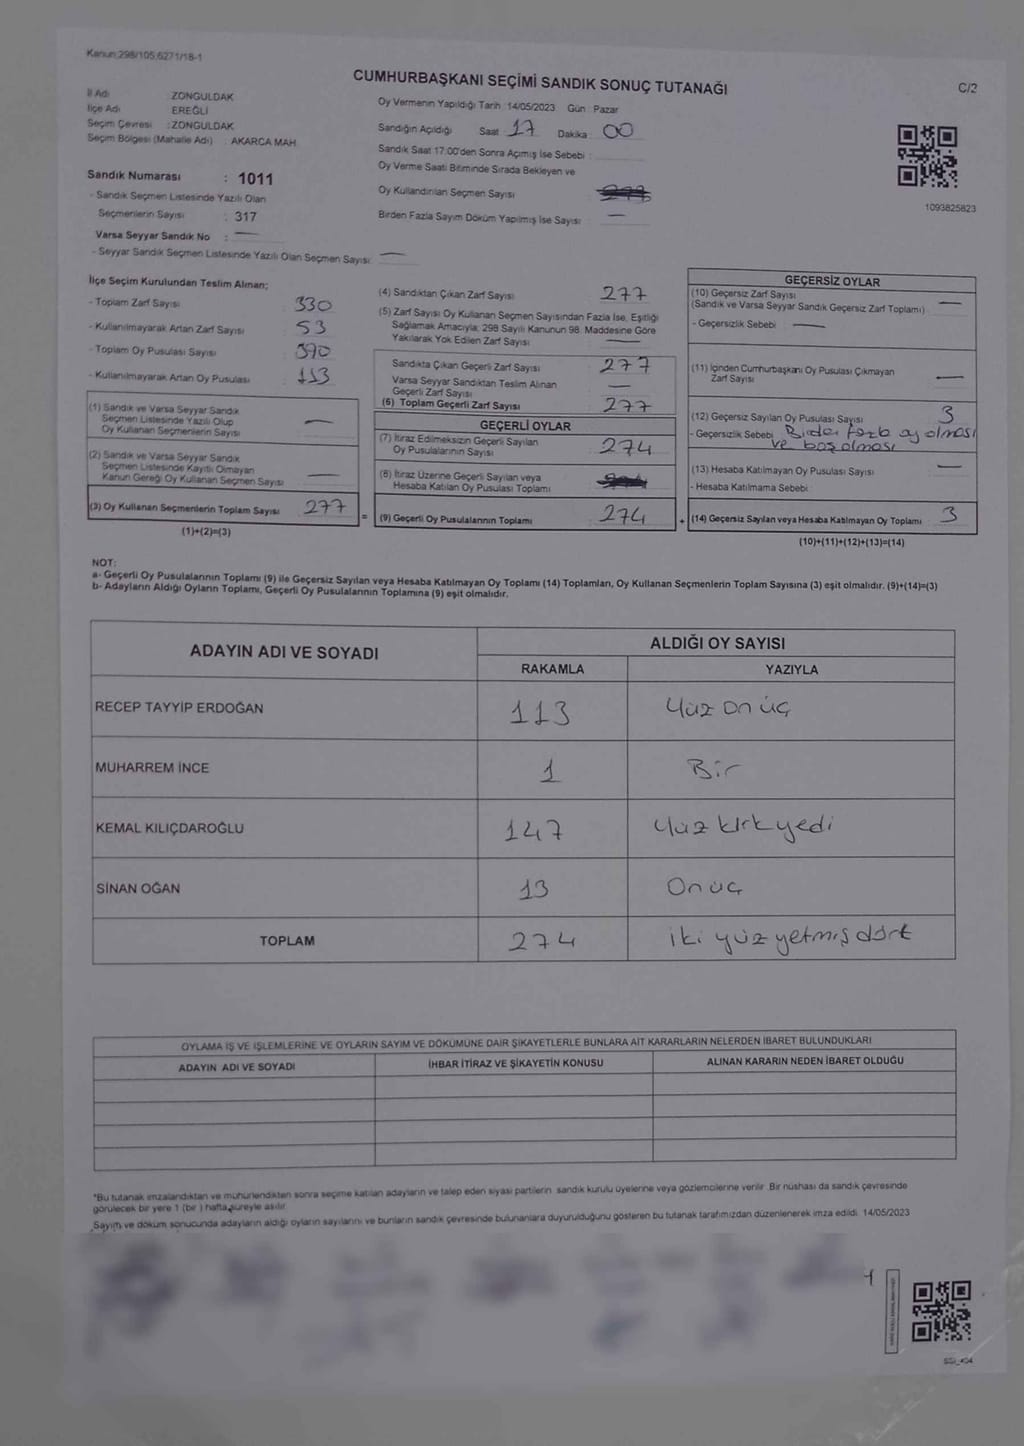 Kanun:298/105,6271/18-1
CUMHURBAŞKANI SEÇİMİ SANDIK SONUÇ TUTANAĞI
C/2
İl Adı : ZONGULDAK
İlçe Adı : EREĞLİ
Seçim Çevresi : ZONGULDAK
Seçim Bölgesi (Mahalle Adı) : AKARCA MAH
Sandık Numarası : 1011
- Sandık Seçmen Listesinde Yazılı Olan
Seçmenlerin Sayısı : 317
Varsa Seyyar Sandık No : —
- Seyyar Sandık Seçmen Listesinde Yazılı Olan Seçmen Sayısı: —
Oy Vermenin Yapıldığı Tarih :14/05/2023 Gün : Pazar
Sandığın Açıldığı Saat : 17 Dakika : 00
Sandık Saat 17:00'den Sonra Açımış İse Sebebi :
Oy Verme Saati Bitiminde Sırada Bekleyen ve
Oy Kullandırılan Seçmen Sayısı :
Birden Fazla Sayım Döküm Yapılmış İse Sayısı : —
1093825823
İlçe Seçim Kurulundan Teslim Alınan;
- Toplam Zarf Sayısı : 330
- Kullanılmayarak Artan Zarf Sayısı : 53
- Toplam Oy Pusulası Sayısı : 390
- Kullanılmayarak Artan Oy Pusulası : 113
(1) Sandık ve Varsa Seyyar Sandık
Seçmen Listesinde Yazılı Olup
Oy Kullanan Seçmenlerin Sayısı —
(2) Sandık ve Varsa Seyyar Sandık
Seçmen Listesinde Kayıtlı Olmayan
Kanun Gereği Oy Kullanan Seçmen Sayısı —
(3) Oy Kullanan Seçmenlerin Toplam Sayısı 277
(1)+(2)=(3)
=
(4) Sandıktan Çıkan Zarf Sayısı 277
(5) Zarf Sayısı Oy Kullanan Seçmen Sayısından Fazla İse, Eşitliği
Sağlamak Amacıyla; 298 Sayılı Kanunun 98. Maddesine Göre
Yakılarak Yok Edilen Zarf Sayısı —
Sandıkta Çıkan Geçerli Zarf Sayısı 277
Varsa Seyyar Sandıktan Teslim Alınan
Geçerli Zarf Sayısı —
(6) Toplam Geçerli Zarf Sayısı 277
GEÇERLİ OYLAR
(7) İtiraz Edilmeksizin Geçerli Sayılan
Oy Pusulalarının Sayısı 274
(8) İtiraz Üzerine Geçerli Sayılan veya
Hesaba Katılan Oy Pusulası Toplamı
(9) Geçerli Oy Pusulalarının Toplamı 274
+
GEÇERSİZ OYLAR
(10) Geçersiz Zarf Sayısı
(Sandık ve Varsa Seyyar Sandık Geçersiz Zarf Toplamı) —
- Geçersizlik Sebebi : —
(11) İçinden Cumhurbaşkanı Oy Pusulası Çıkmayan
Zarf Sayısı —
(12) Geçersiz Sayılan Oy Pusulası Sayısı 3
- Geçersizlik Sebebi : Birden fazla oy olması
ve boş olması
(13) Hesaba Katılmayan Oy Pusulası Sayısı —
- Hesaba Katılmama Sebebi :
(14) Geçersiz Sayılan veya Hesaba Katılmayan Oy Toplamı 3
(10)+(11)+(12)+(13)=(14)
NOT:
a- Geçerli Oy Pusulalarının Toplamı (9) ile Geçersiz Sayılan veya Hesaba Katılmayan Oy Toplamı (14) Toplamları, Oy Kullanan Seçmenlerin Toplam Sayısına (3) eşit olmalıdır. (9)+(14)=(3)
b- Adayların Aldığı Oyların Toplamı, Geçerli Oy Pusulalarının Toplamına (9) eşit olmalıdır.
ADAYIN ADI VE SOYADI
ALDIĞI OY SAYISI
RAKAMLA YAZIYLA
RECEP TAYYİP ERDOĞAN 113 Yüz on üç
MUHARREM İNCE 1 Bir
KEMAL KILIÇDAROĞLU 147 Yüz kırk yedi
SİNAN OĞAN 13 On üç
TOPLAM 274 iki yüz yetmiş dört
OYLAMA İŞ VE İŞLEMLERİNE VE OYLARIN SAYIM VE DÖKÜMÜNE DAİR ŞİKAYETLERLE BUNLARA AİT KARARLARIN NELERDEN İBARET BULUNDUKLARI
ADAYIN ADI VE SOYADI İHBAR İTİRAZ VE ŞİKAYETİN KONUSU ALINAN KARARIN NEDEN İBARET OLDUĞU
*Bu tutanak imzalandıktan ve mühürlendikten sonra seçime katılan adayların ve talep eden siyasi partilerin sandık kurulu üyelerine veya gözlemcilerine verilir. Bir nüshası da sandık çevresinde
görülecek bir yere 1 (bir ) hafta süreyle asılır.
Sayım ve döküm sonucunda adayların aldığı oyların sayılarını ve bunların sandık çevresinde bulunanlara duyurulduğunu gösteren bu tutanak tarafımızdan düzenlenerek imza edildi. 14/05/2023